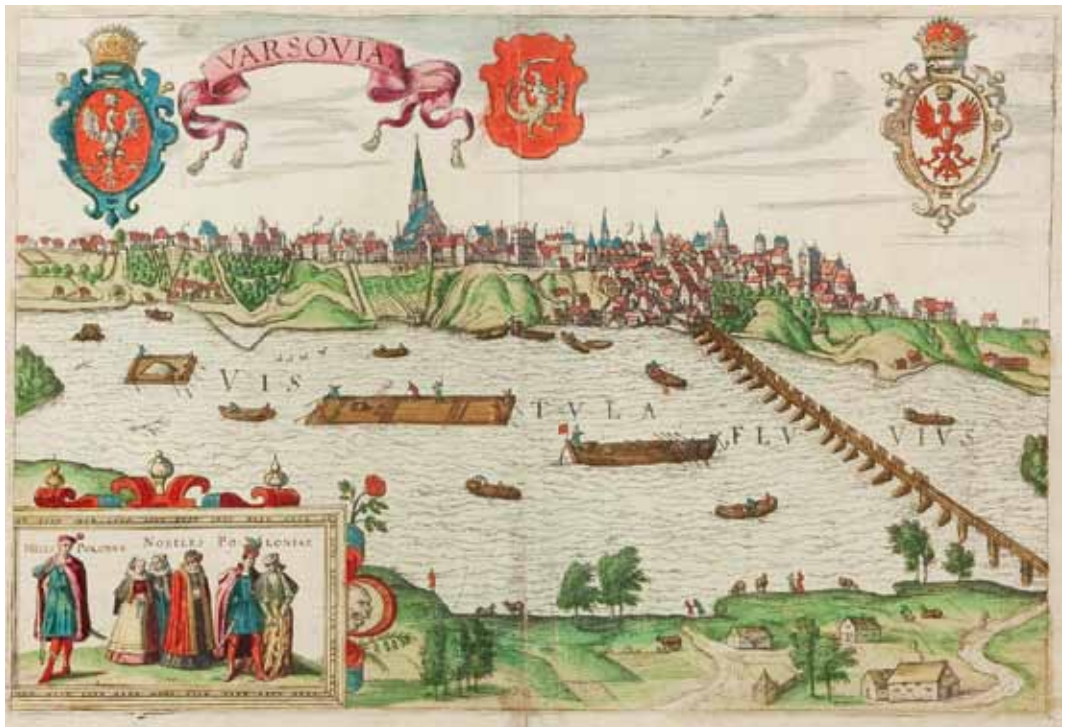 VARSOVIA
VIS TVLA FLV VIVS
POLONVS NOBILES POLONIAE